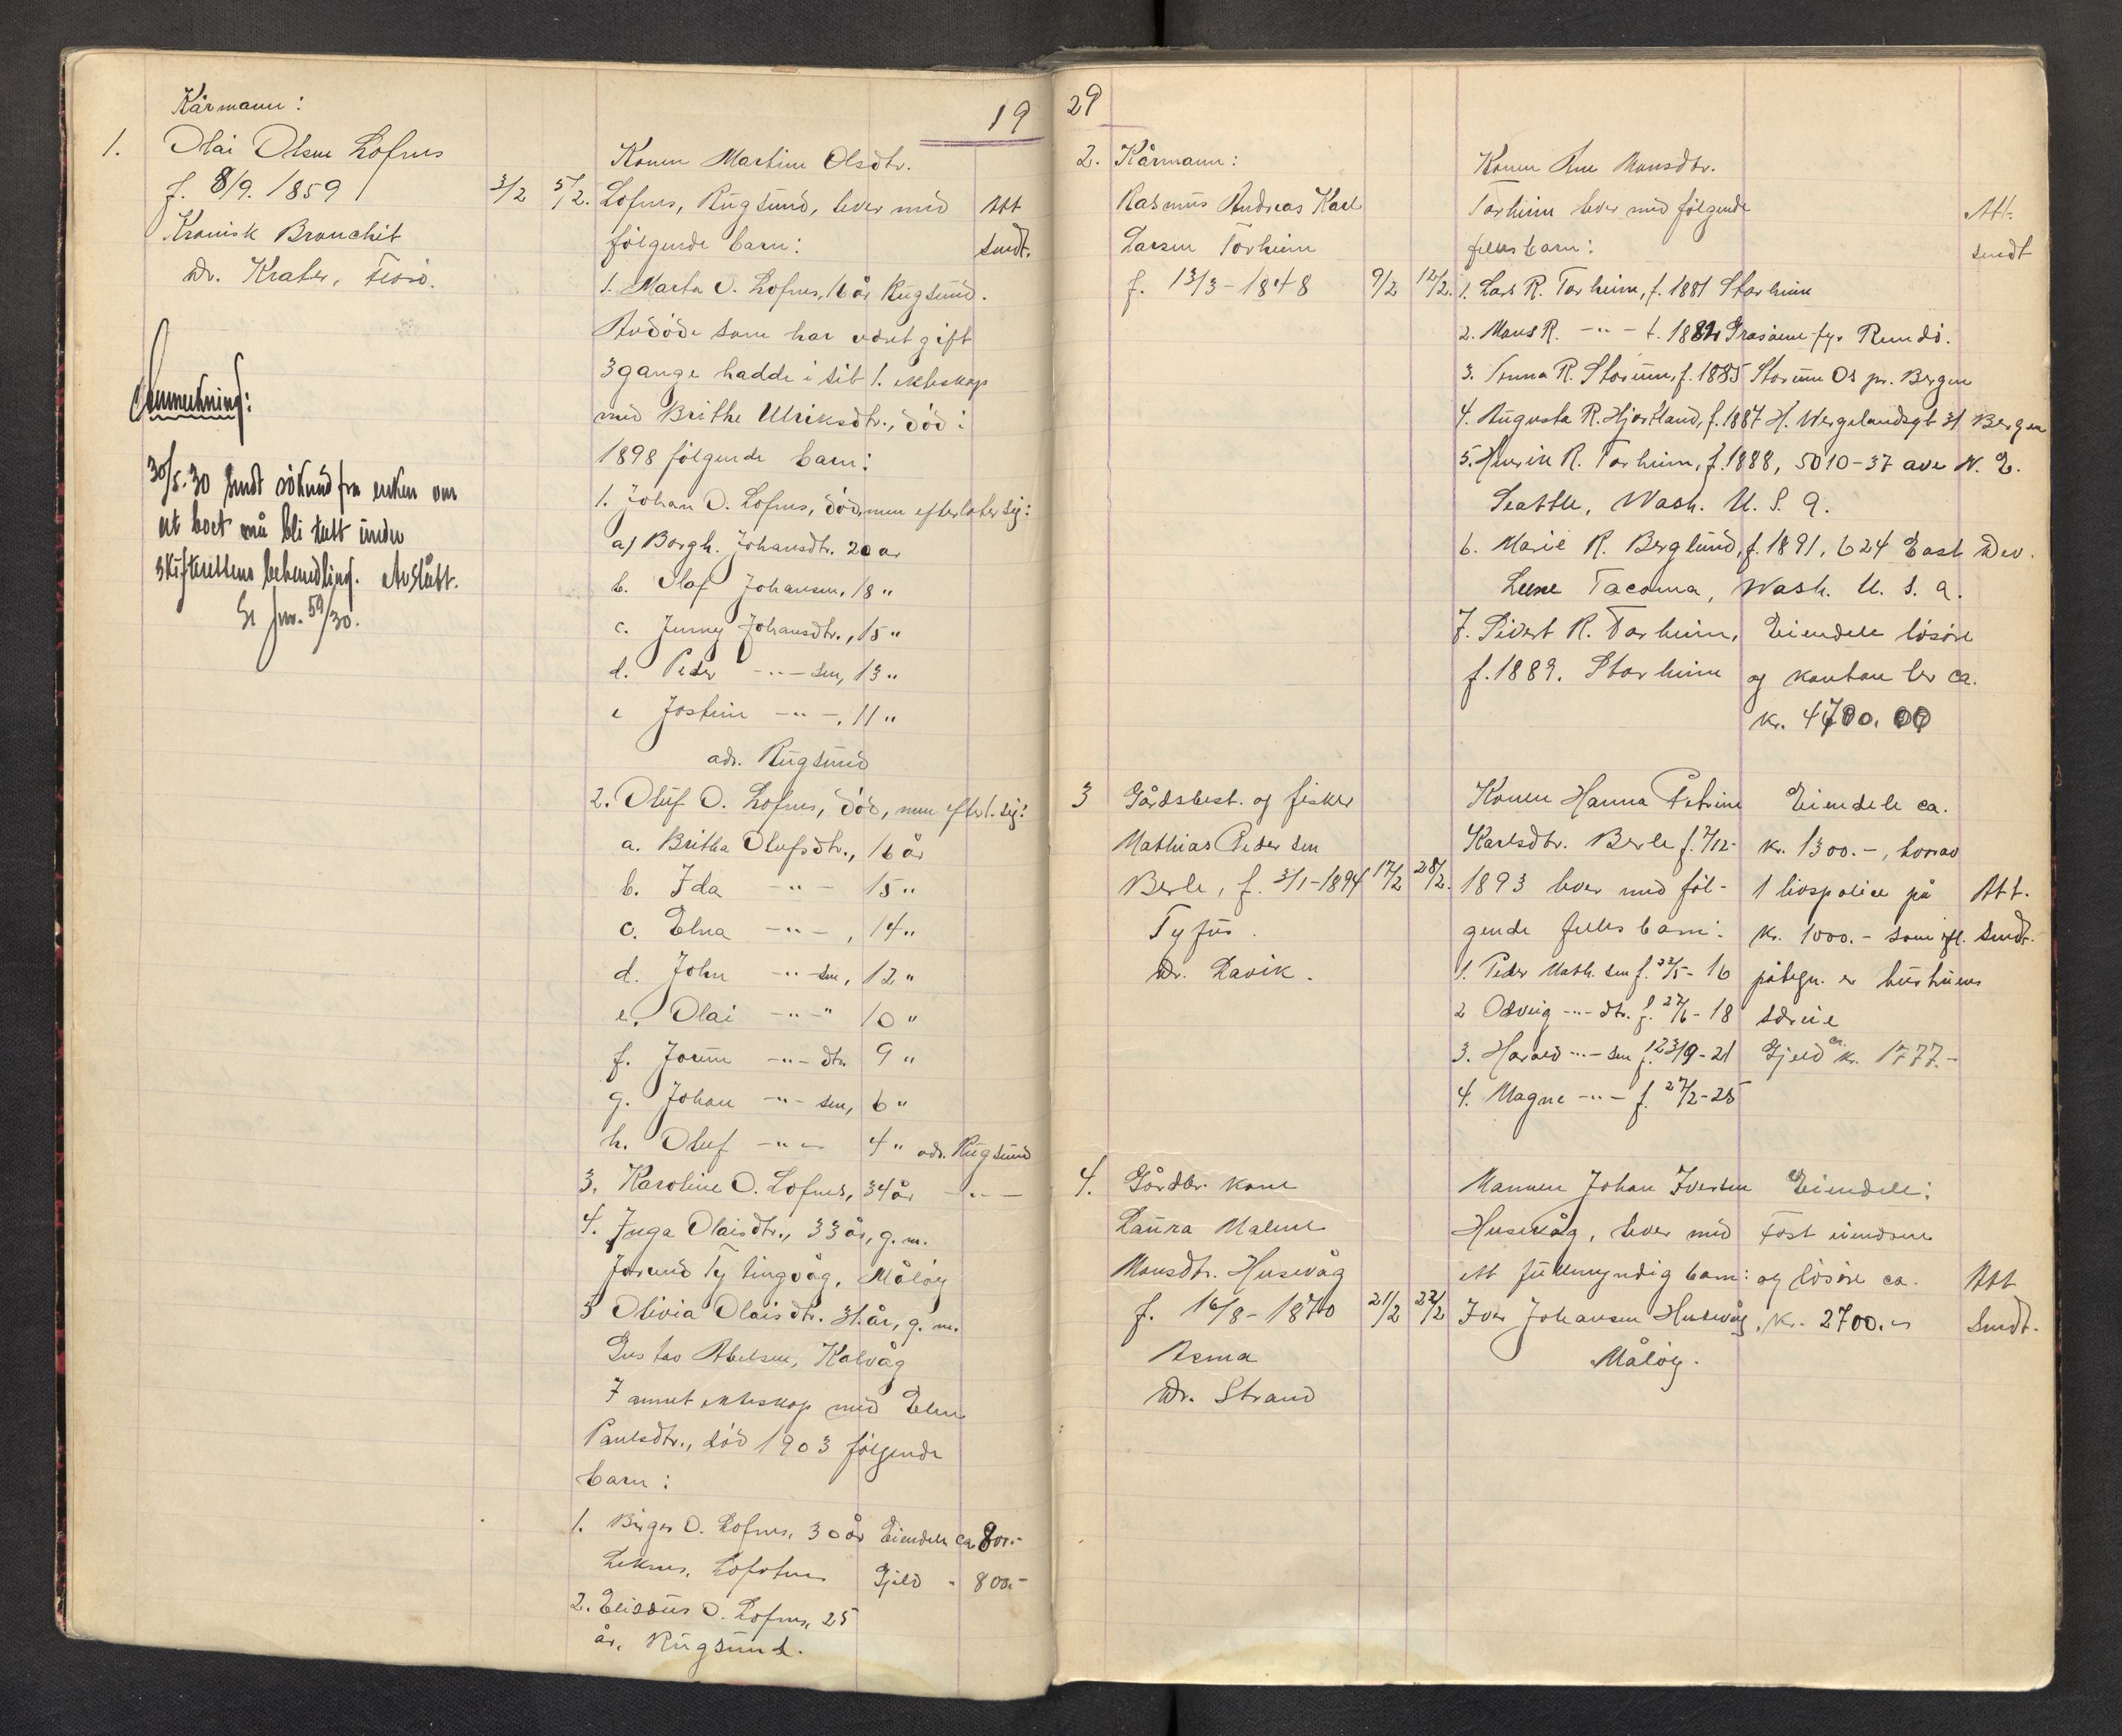 19
Kårmann:
1. Olai Olsen Lofnes
f. 8/9. 1859
Kronisk Bronchit
Dr. Krater,
3/2 5/2.
Anmerkning:
30/5.30 sendt søknad fra enken om
at boet må bli tatt under
skifterettens behandling. Avslått.
Se jnr. 59/30.
Konen Martine Olsdtr.
Lofnes, Rugsund, lever med
følgende barn:
Att
sendt.
1. Marta O. Lofnes, 16 år Rugsund.
Avdøde som har været gift
3 gange hadde i sit 1. ekteskap
med Brithe Ulriksdtr., død i
1898 følgende barn:
1. Johan O. Lofnes, død, men efterlater sig:
a) Borgh. Johansdtr. 20 år
b. Olaf Johansen, 18 "
c. Jenny Johansdtr., 15 "
d. Peder -"- sen, 13 "
e Jostein -"-, 11 "
adr. Rugsund
2. Oluf O. Lofnes, død, men efterl. sig:
a. Britha Olufsdtr., 16 år
b. Ida -"- 15 "
c. Elna -"-, 14 "
d. John -"- sen, 12 "
e. Olai -"-" 10 "
f. Jorun -"- dtr. 9 "
g. Johan -"- sen, 6 "
h. Oluf -"- 4 " adr. Rugsund
3. Karoline O. Lofnes, 34 år -"-
4. Inga Olaisdtr., 33 år, g.m.
Tytingvåg, Måløy
5 Olivia Olaisdtr. 31 år, g.m.
Gustav Abelsen, Kalvåg
I annet ekteskap med Elen
Paulsdtr., død 1903 følgende
barn:
1. Birger O. Lofnes, 30 år Eiendele ca 800.-
Leknes, Lofoten Gjeld " 800.-
2. Elisæus O. Lofnes, 25
år, Rugsund.
29
2. Kårmann:
Rasmus Andreas Karl
Larsen Torheim
f. 13/3-1848 9/2 12/2.
Konen Ane Monsdtr.
Torheim lever med følgende
felles barn:
Att.
sendt
1. Lars R. Torheim, f. 1881 Storheim
2. Mons R. -"- f. 1882 fyr Rundø.
3. R. Storum, f. 1885 Storum Os pr. Bergen
4. Augusta R. Hjortland, f. 1887 H. Wergelandsgt 31 Bergen
5. Henrik R. Torheim, f. 1888, 5010-37 ave N. E.
Seattle, Wash. U. S. A.
6. Marie R. Berglund, f. 1891, 624 East
Tacoma, Wash. U. S. A.
7. Sivert R. Torheim,
f. 1889. Storheim
Eiendele løsøre
og kontanter ca.
kr. 4700.00
3 Gårdsbest. og fisker
Mathias Pedersen
Berle, f. 3/1-1894 17/2 28/2.
Tyfus.
Dr. Lavik.
Konen Hanna Petrine
Karlsdtr. Berle f. 7/12-
1893 lever med føl-
gende felles barn:
1. Peder Math.sen f. 22/5-16
2 Oddveig -"- dtr. f. 27/6-18
3. Harald -"- sen f. 23/9-21
4. Magne -"- f. 27/2-25
Eiendele ca.
kr. 1300.-, hvorav
1 livspolice på
kr. 1000.- som ifl.
påtegn. er hustruens
særeie
Gjeld ca. kr. 1777.-
Att.
sendt.
4. Gårdbr. kone
Laura Malene
Monsdtr. Husevåg
f. 16/8-1870 21/2 22/2
Dr. Strand
Mannen Johan Iversen
Husevåg, lever med
ett fullmyndig barn:
Iver Johansen Husevåg,
Måløy.
Eiendele:
Fast eiendom
og løsøre ca.
kr. 2700.-
Att
Sendt.